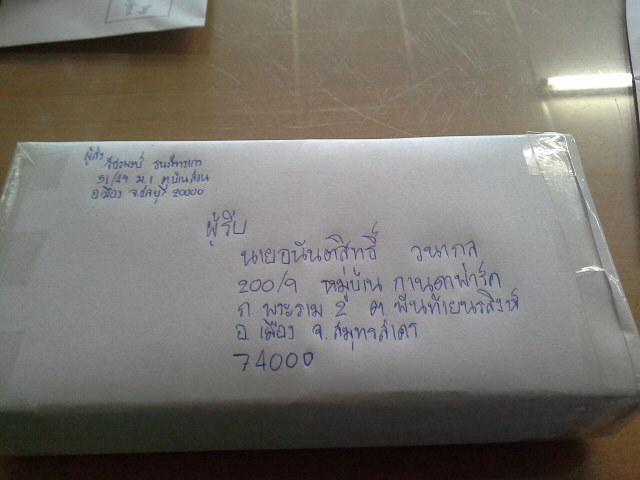 ผู้ส่ง
51/29 ม.1 ต.บ้านสวน
อ.เมือง จ.ชลบุรี 20000
ผู้รับ
นายอนันตสิทธิ์ วนากล
200/9 หมู่บ้าน กานดาพาร์ค
ถ.พระราม 2 ต พันท้ายนรสิงห์
อ.เมือง จ.สมุทรสาคร
74000